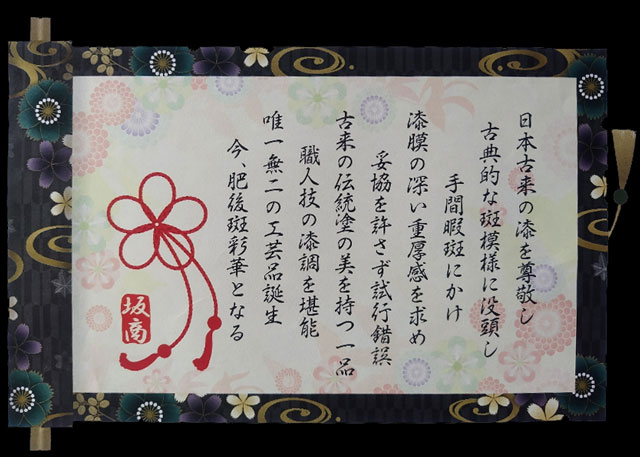 日本古来の漆を尊敬し
古典的な斑模様に没頭し
手間暇斑にかけ
漆膜の深い重厚感を求め
妥協を許さず試行錯誤
古来の伝統塗の美を持つ一品
職人技の漆調を堪能
唯一無二の工芸品誕生
今、肥後斑彩華となる
坂高